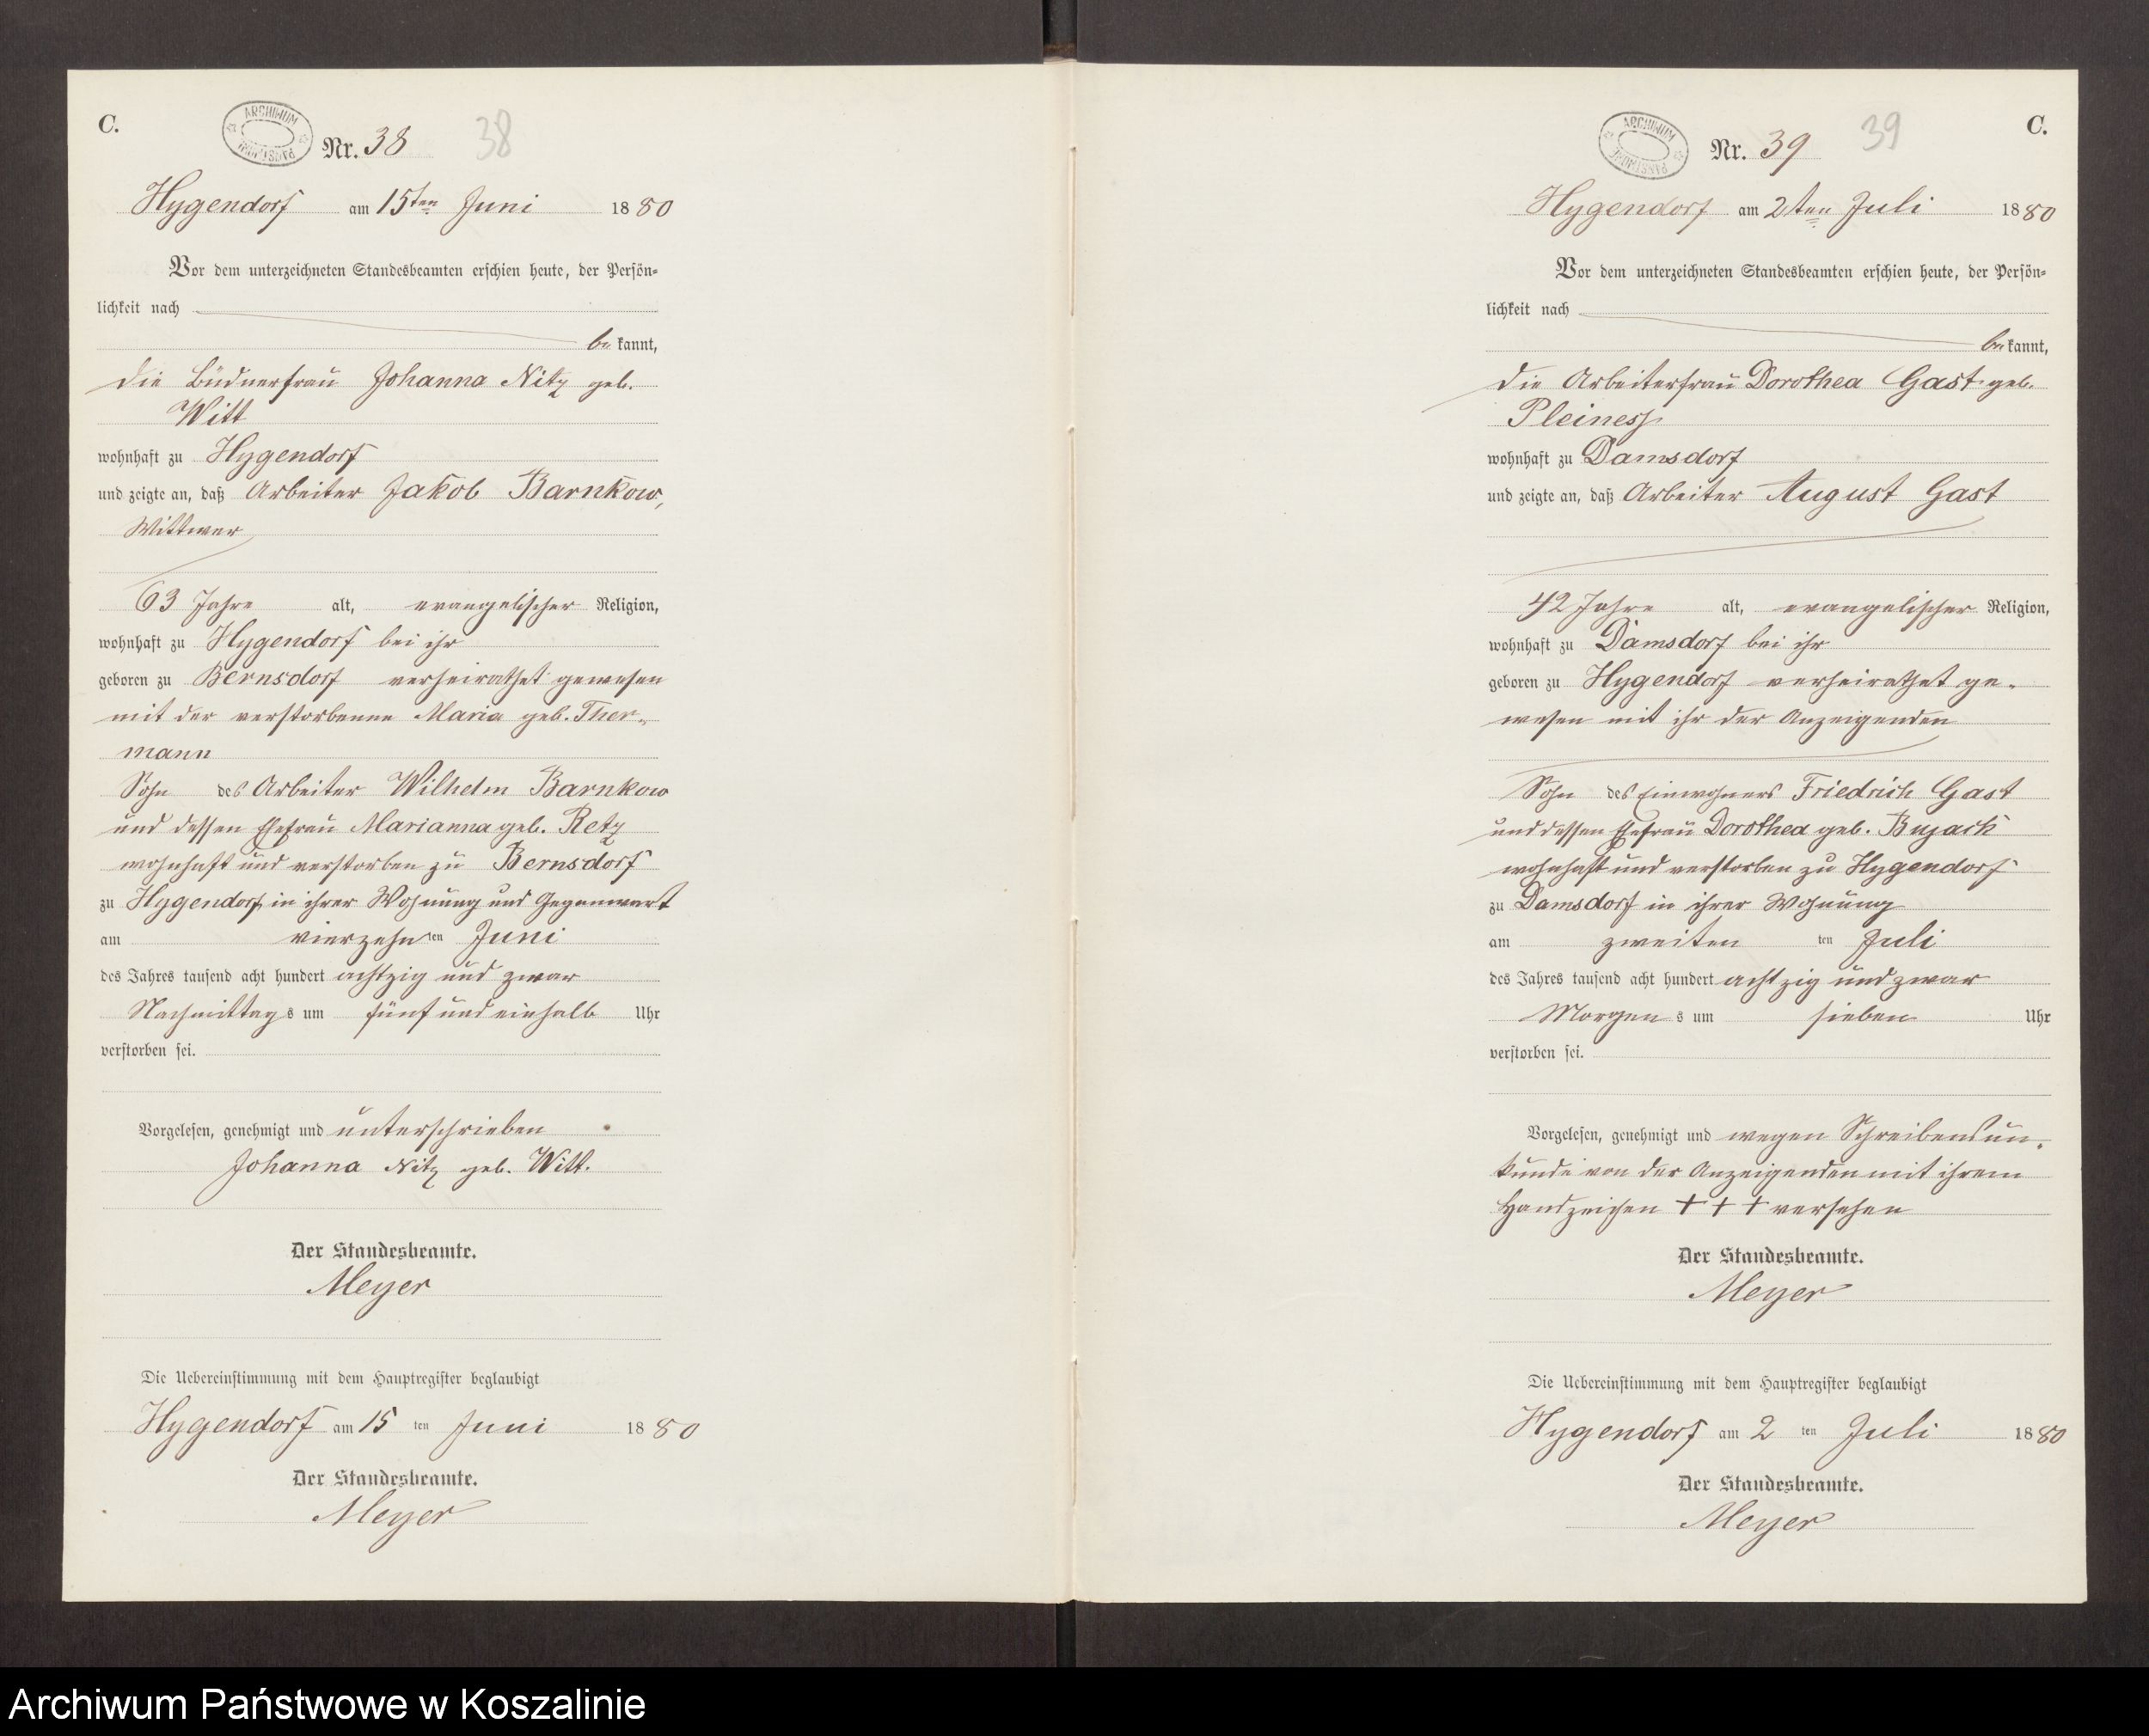 C.
ARCHIWUM PAŃSTWOWE
Nr. 38
38
Hygendorf am 15ten Juni 1880
Vor dem unterzeichneten Standesbeamten erschien heute, der Persön-
lichkeit nach
bekannt,
die Büdnerfrau Johanna Nitz geb.
Witt
wohnhaft zu Hygendorf
und zeigte an, daß Arbeiter Jakob Barnkow,
Wittwer
63 Jahre alt, evangelischer Religion,
wohnhaft zu Hygendorf bei ihr
geboren zu Bernsdorf verheirathet gewesen
mit der verstorbenne Maria geb. Ther-
mann
Sohn des Arbeiter Wilhelm Barnkow
und dessen Ehefrau Marianna geb. Retz
wohnhaft und verstorben zu Bernsdorf
zu Hygendorf in ihrer Wohnung und Gegenwart
am vierzehn ten Juni
des Jahres tausend acht hundert achtzig und zwar
Nachmittags um fünf und einhalb Uhr
verstorben sei.
Vorgelesen, genehmigt und unterschrieben
Johanna Nitz geb. Witt.
Der Standesbeamte.
Meyer
Die Uebereinstimmung mit dem Hauptregister beglaubigt
Hygendorf am 15 ten Juni 1880
Der Standesbeamte.
Meyer
C.
ARCHIWUM PAŃSTWOWE
Nr. 39
39
Hygendorf am 2ten Juli 1880
Vor dem unterzeichneten Standesbeamten erschien heute, der Persön-
lichkeit nach
bekannt,
die Arbeiterfrau Dorothea Gast geb.
Pleiness
wohnhaft zu Damsdorf
und zeigte an, daß Arbeiter August Gast
42 Jahre alt, evangelischer Religion,
wohnhaft zu Damsdorf bei ihr
geboren zu Hygendorf verheirathet ge-
wesen mit ihr der Anzeigenden
Sohn des Einwohners Friedrich Gast
und dessen Ehefrau Dorothea geb. Bujack
wohnhaft und verstorben zu Hygendorf
zu Damsdorf in ihrer Wohnung
am zweiten ten Juli
des Jahres tausend acht hundert achtzig und zwar
Morgens um sieben Uhr
verstorben sei.
Vorgelesen, genehmigt und wegen Schreibensun-
kunde von der Anzeigenden mit ihrem
Handzeichen + + + versehen
Der Standesbeamte.
Meyer
Die Uebereinstimmung mit dem Hauptregister beglaubigt
Hygendorf am 2 ten Juli 1880
Der Standesbeamte.
Meyer
Archiwum Państwowe w Koszalinie